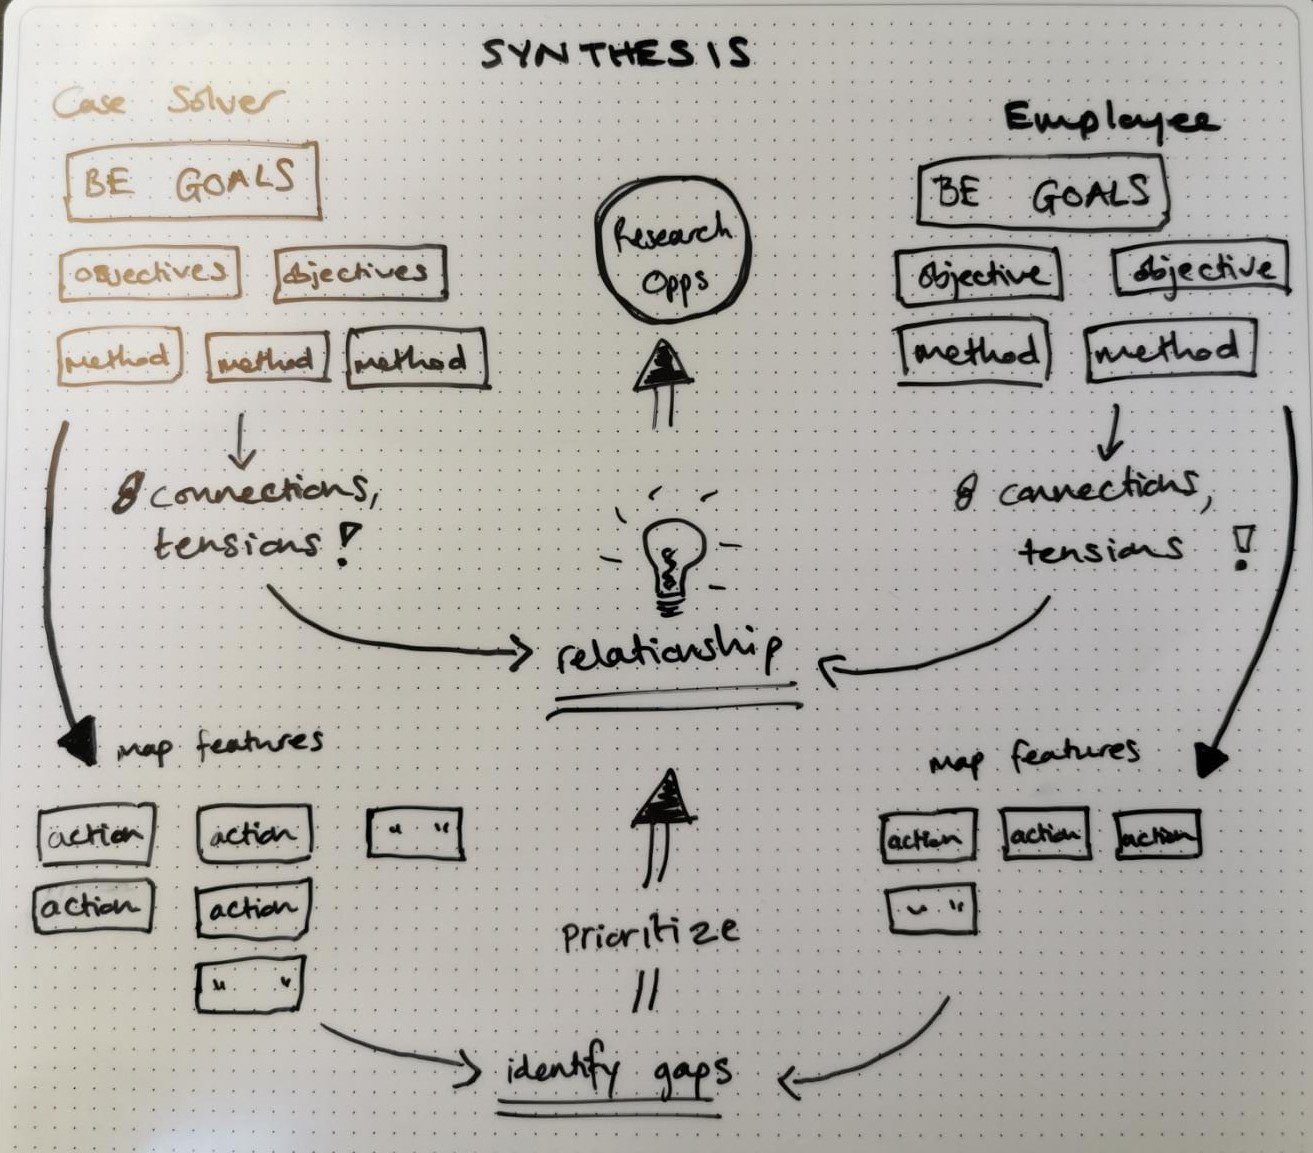 SYNTHESIS
Case Solver
BE GOALS
objectives
objectives
method
method
method
connections,
tensions!
map features
action
action
" "
action
action
" "
Research
Opps
relationship
Prioritize
identify gaps
Employee
BE GOALS
objective
objective
method
method
connections,
tensions !
map features
action
action
action
" "